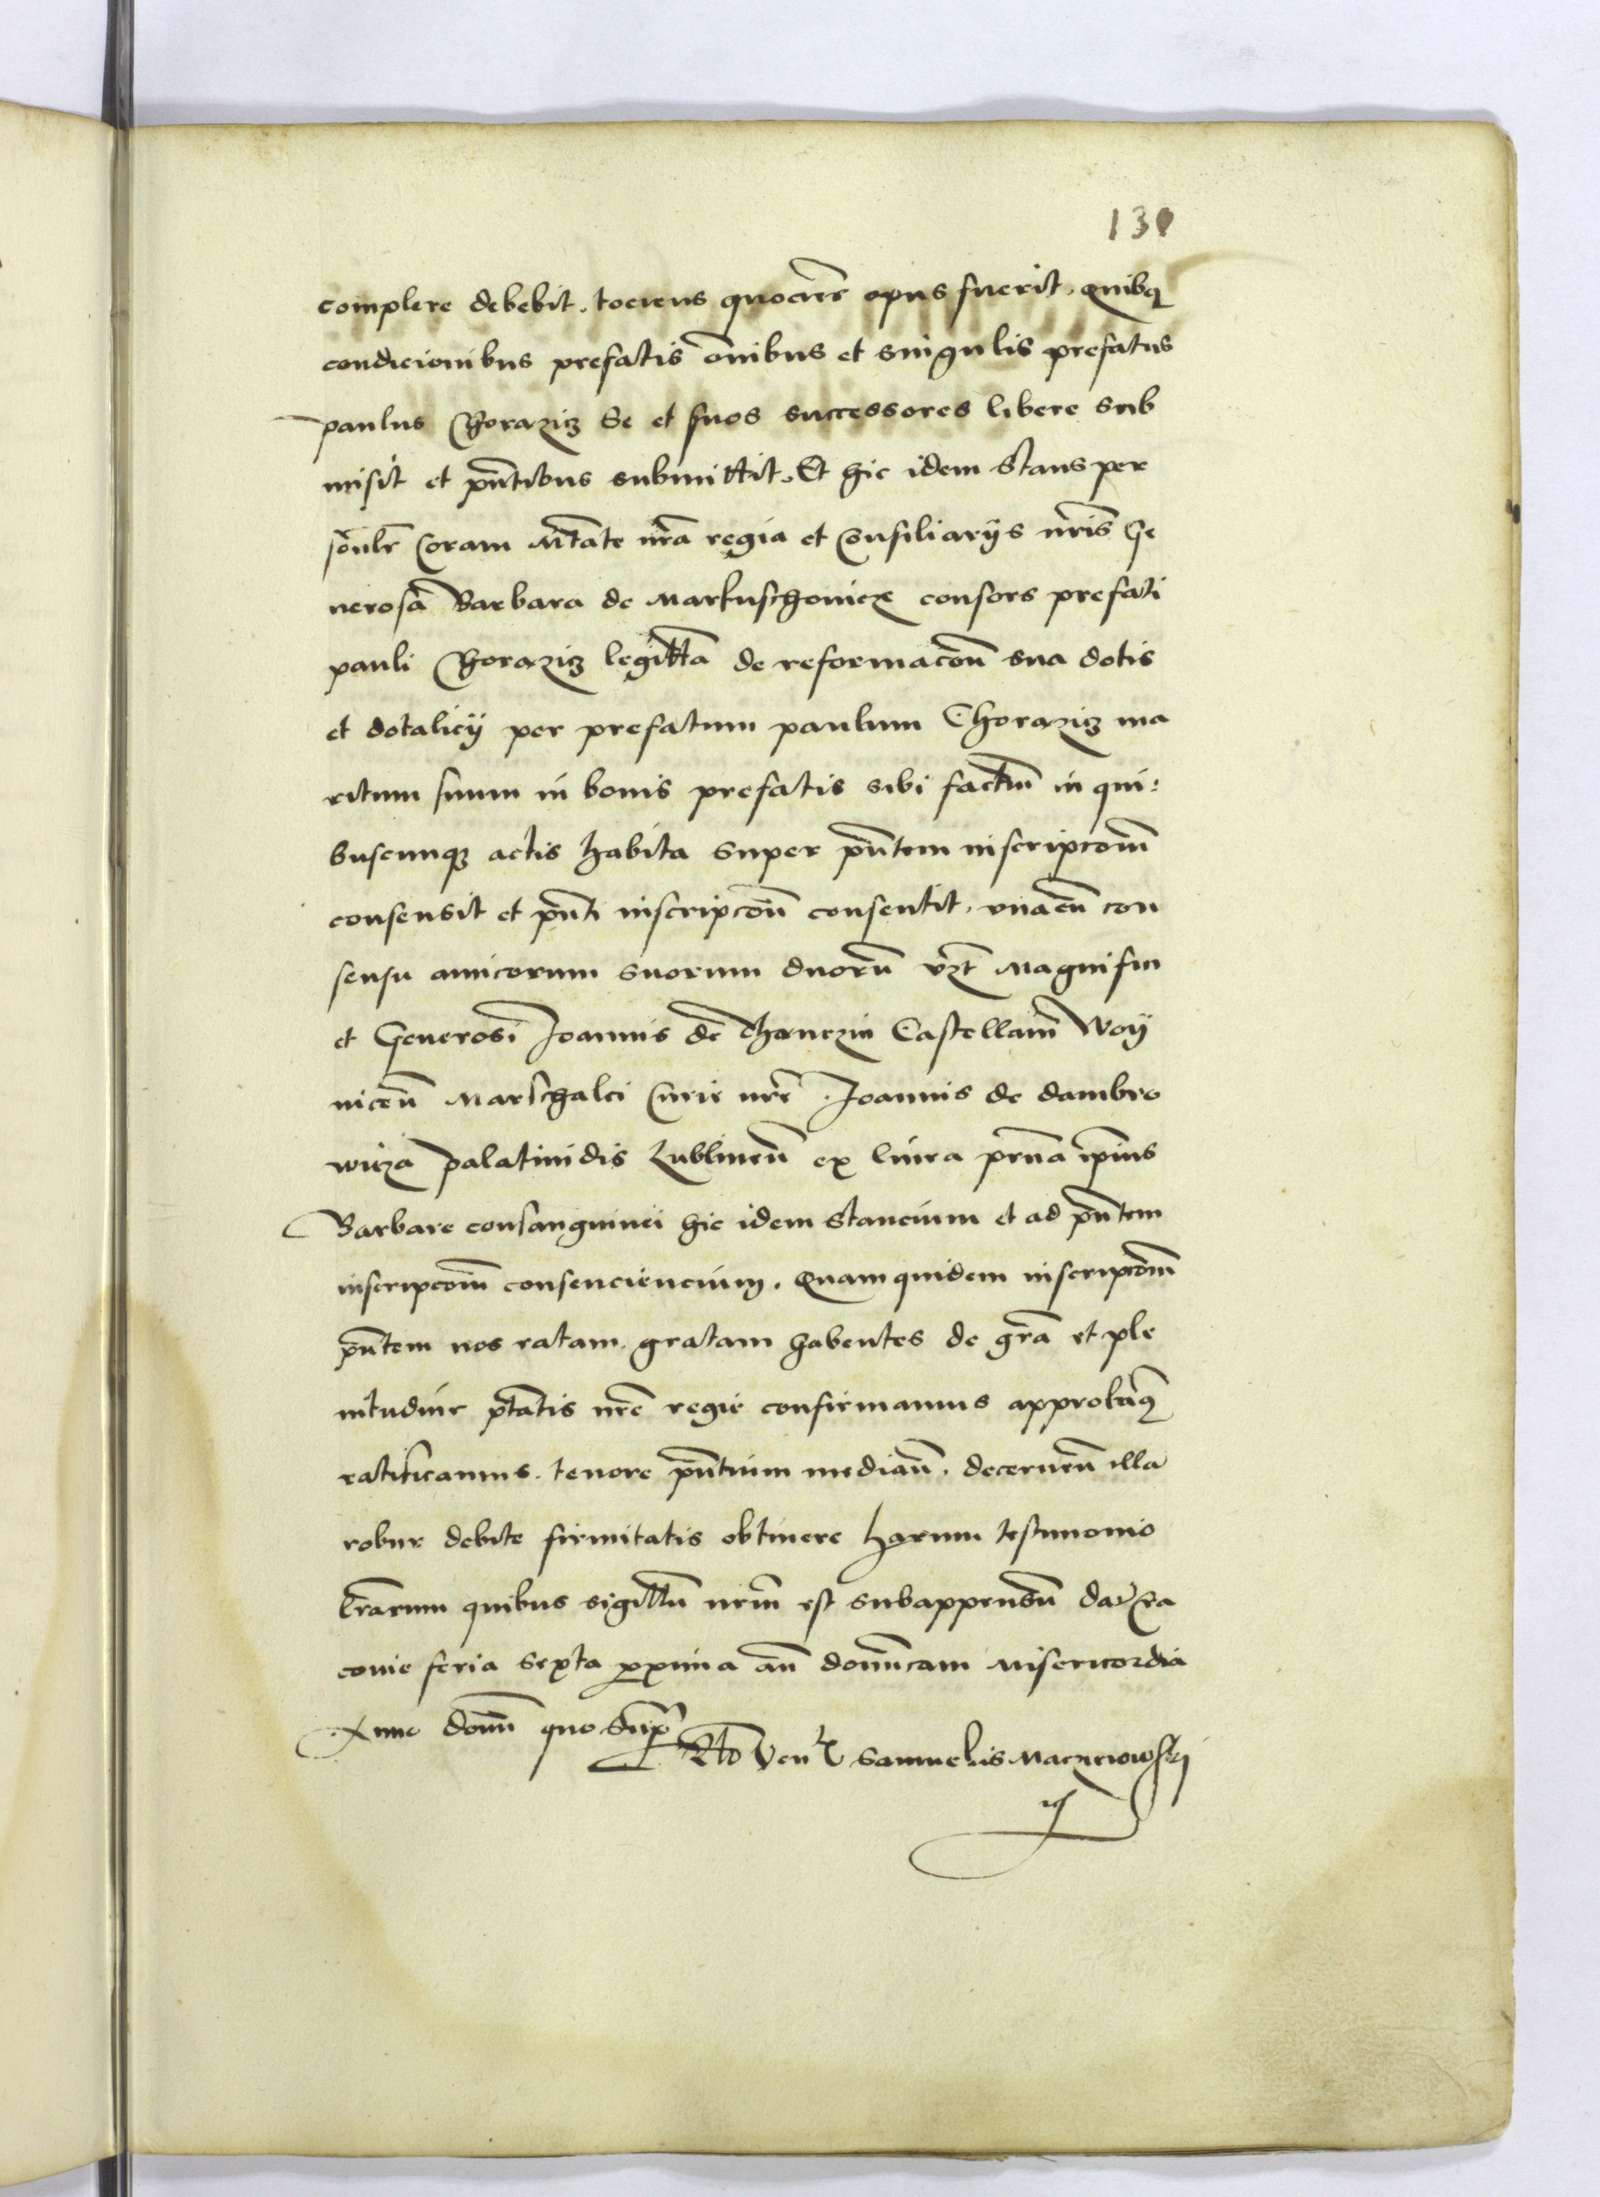 130
complere debebit. tociens quocies opus fuerit. quibq
condicionibus prefatis oībus et singulis prefatus
paulus Chorazicz Se et suos successores libere sub
misit et pn̄tibus submittit. Et hic idem Stans per
sōnlr Coram Mtate nr̄a regia et Consiliarijs nr̄is Ge
nerosa Barbara de Markuschowicze consors prefati
pauli Chorazicz legittīa de reformacōn sua dotis
et dotalicij per prefatum paulum Chorazicz ma
ritum suum in bonis prefatis sibi factam̄ in qui:
buscunqz actis habita super pn̄tem inscripcōm
consensit et pn̄ti inscripcōn consentit. vnacū con
sensu amicorum suorum duorū vꝫt Magnifici
et Generosi Joannis de Thanczin Castellani Woy
nicen̄ Marschalci Curie nr̄e Joannis de dambro
wicza palatinidis Lublinen̄ ex linea pr̄na ip̄ius
Barbare consanguinei hic idem Stancium et ad pn̄tem
inscripcōm consenciencium. Quam quidem inscripcōm
pn̄tem nos ratam. gratam habentes de gr̄a et ple
nitudine ptatis nr̄e regie confirmamus approbamq
ratificamus. tenore pn̄tium median̄. decernen̄ illa
robur debite firmitatis obtinere harum testimonio
lr̄arum quibus sigillū nr̄m est subappensū dat Cra
couie feria sexta proxima an̄ dominicam Misericordia
Anno domi quo supra
Rlo Ven Samuelis Maczieiowskij